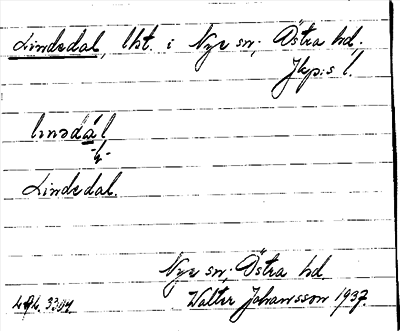 Lindedal, lht. i Nye sn; Östra hd;
Jkp:s l.
lınədál
Lindedal.
Nye sn; Östra hd.
Walter Johansson 1937.